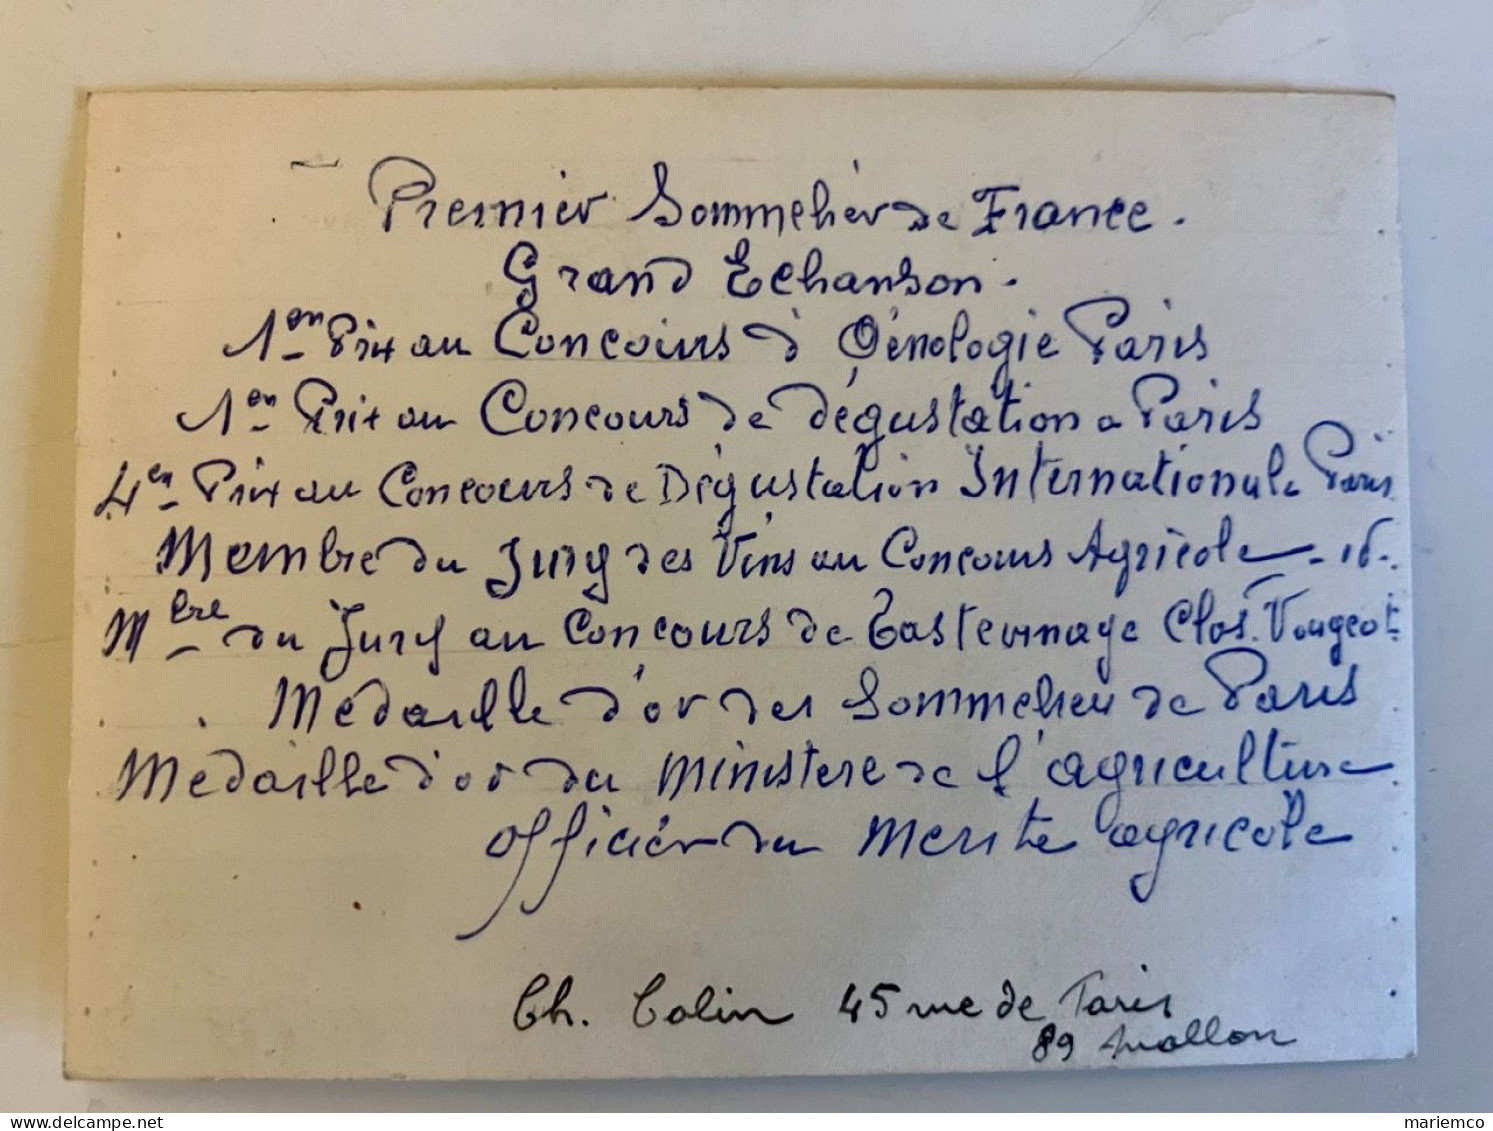 Premier Sommeliér de France.
Grand Echanson.
1er Prix au Concours d' Oénologie Paris
1er Prix au Concours de dégustation a Paris
4en Prix au Concours de Dégustation Internationale Paris
Membre du Jury des Vins au Concours Agricole - id -
Mbre du Jury au Concours de Tastevinage Clos. Vougeot
Médaille d'or des Sommeliers de Paris
Medaille d'or du Ministere de l'agriculture
officiér du Merite agricole
Ch. Colin 45 rue de Paris
89 Avallon
mariemco